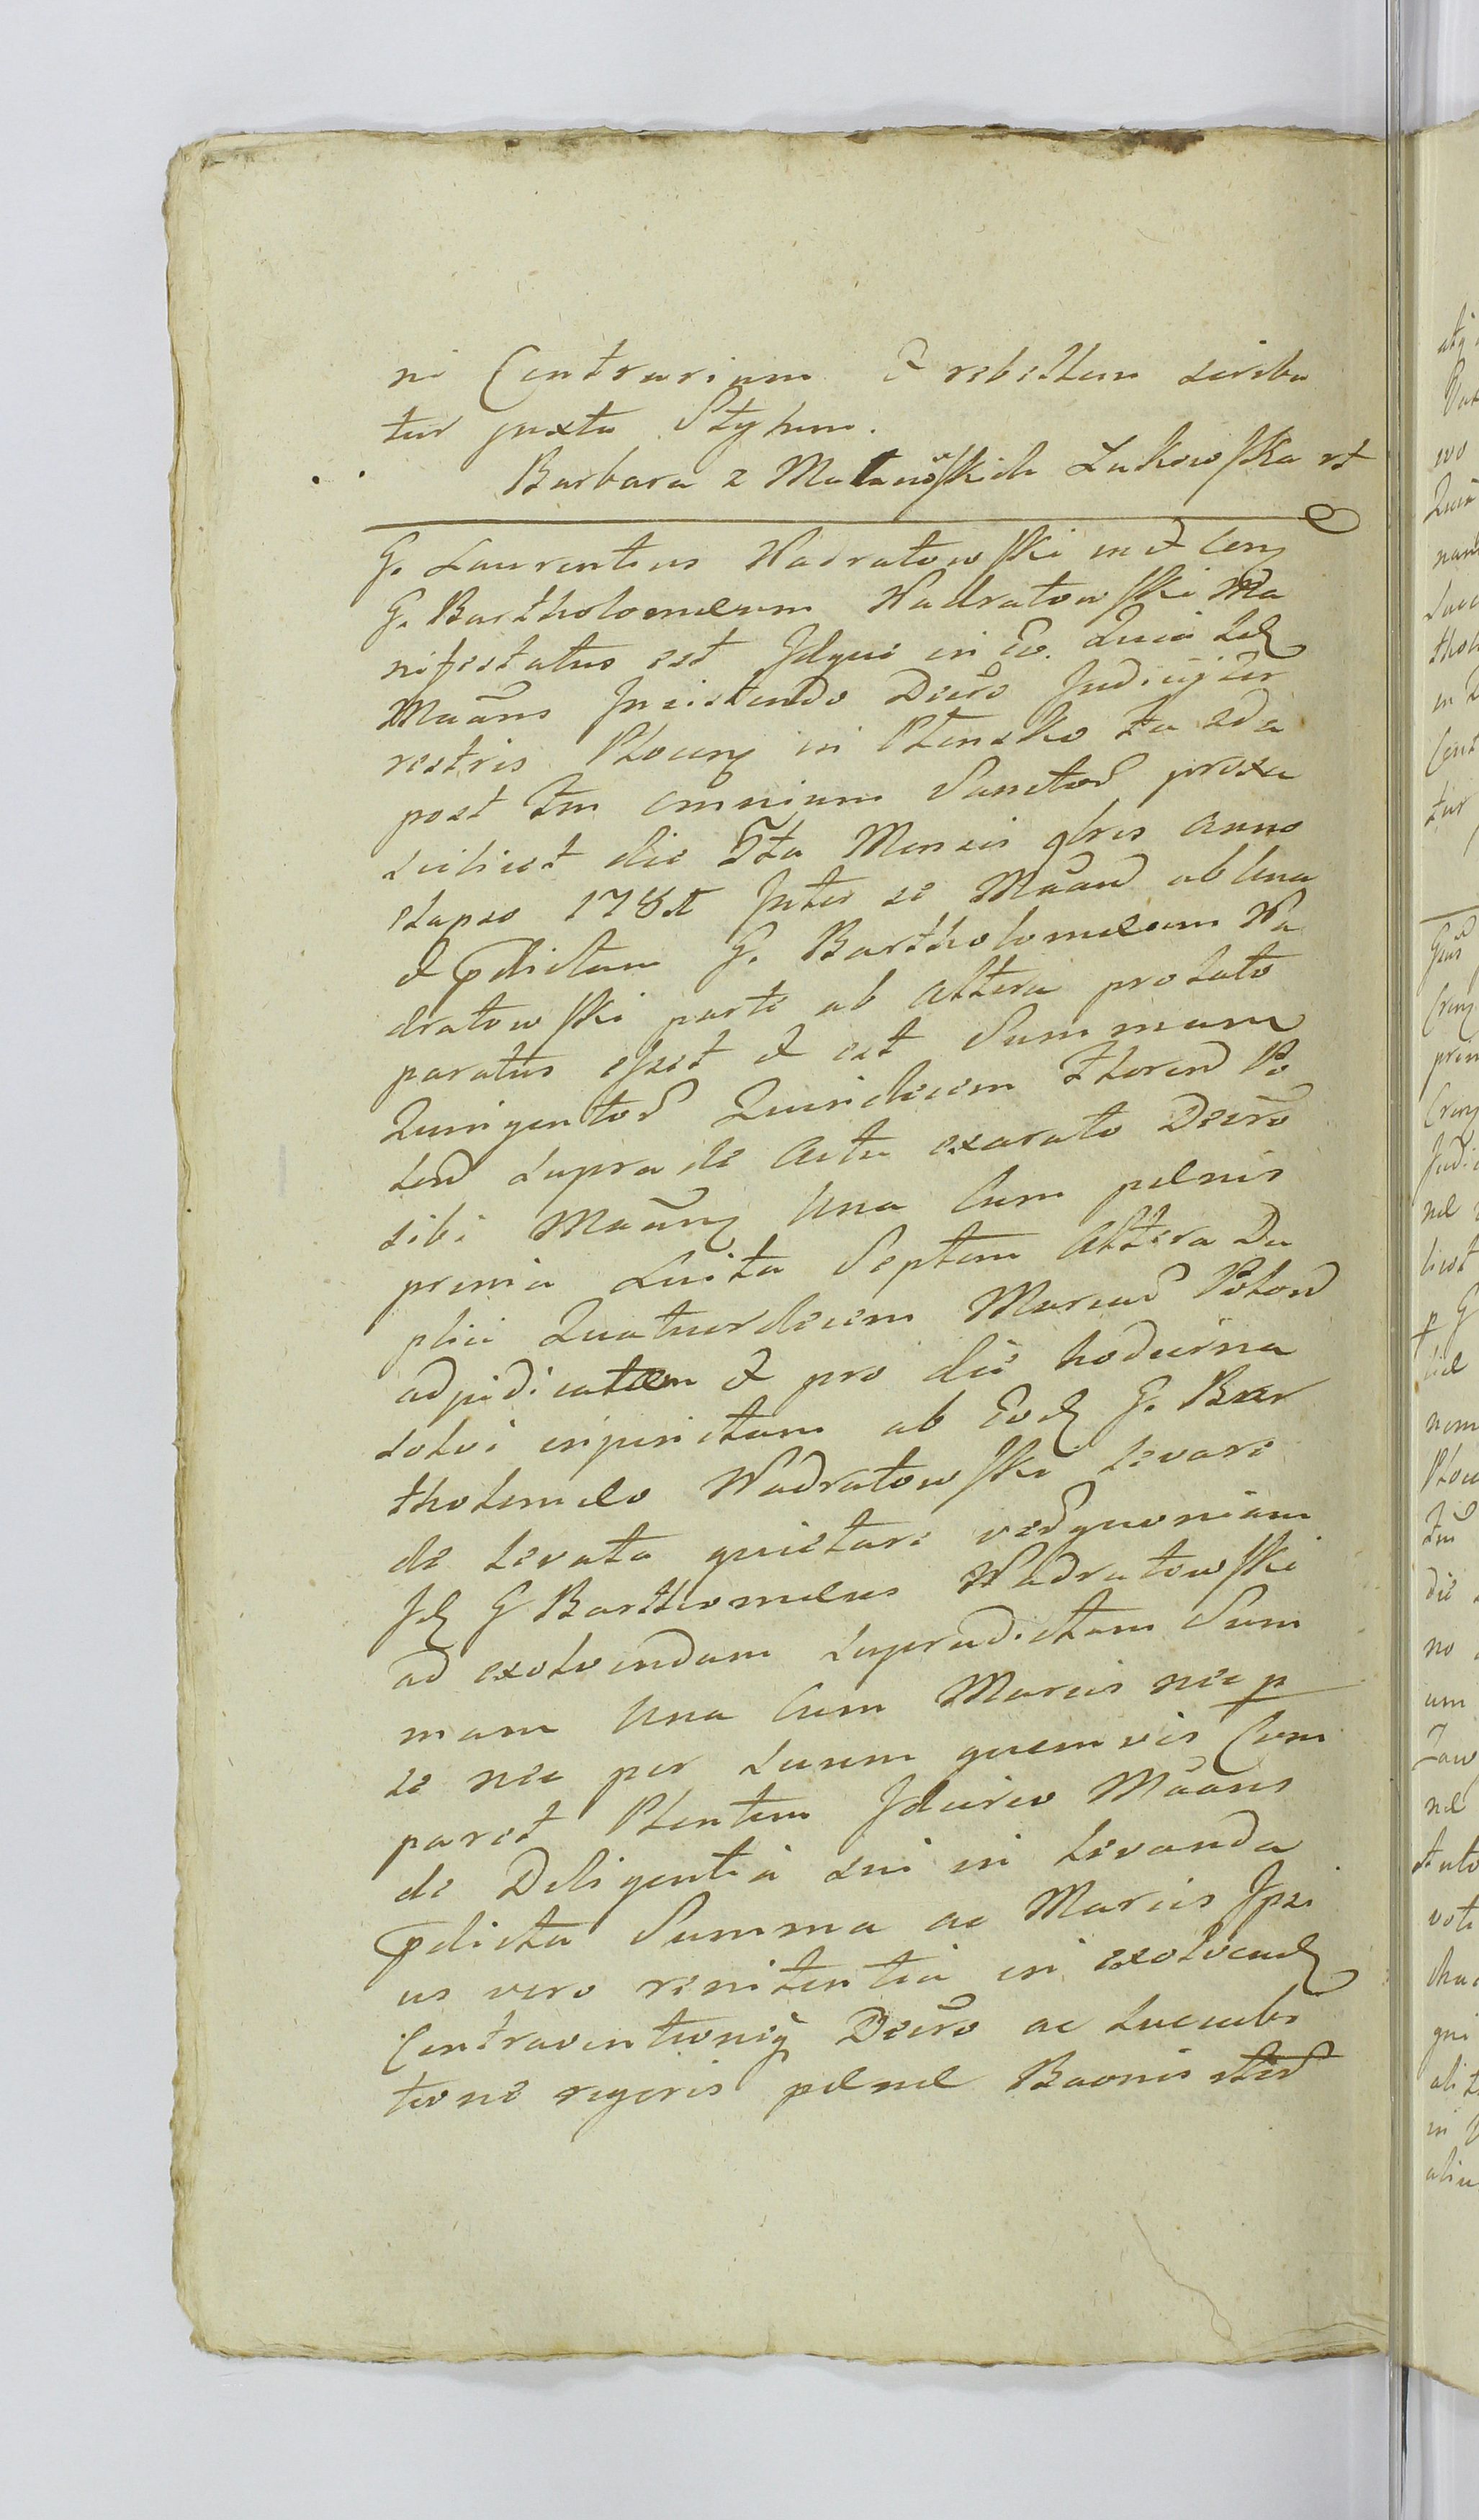 ni Contrarium & rebellem scribu
tur juxta Stylum.
Barbara z Lukowska
G. Laurentius Nadratowski in & Conq
G. Bartholomæum Nadratowski Ma
nifestatus est Idque in Eo. Quia Idq
Maãns Insistendo Decro Judicij Ter
restris Plocenq in Plonsko Fa 2da
post Fm Omnium Sanctor proxa
scilicet die 5ta Mensis 9bris anno
elapso 178 Inter se Maan ab una
& pdictum G. Bartholomæum Na
dratowski parte ab altera prolato
paratus esset & est Summam
Quingentor Quindecim Floren Po
lon supra de Actu exarato Decro
sibi Maanq una cum pænis
prima Luita Septem Altera Du
plici Quatuordecim Marcar Polon
adjudicatam & pro die hodierna
solvi injunctam ab Eodq G. Bar
tholomæo Nadratowski levare
de levata quietare ver quoniam
Idq G Bartholomæus Nadratowski
ad exolvendam supradictam Sum
mam una cum Marcis nec p
se nec per suum quemvis Com
paret Plentem Idcirco Maans
de Diligentia sui in levanda
pdicta Summa ac Marcis Ipsi
us vero renitentia in exolvendq
Contraventioneq Decro ac succubi
tione rigoris pænæ Baonis